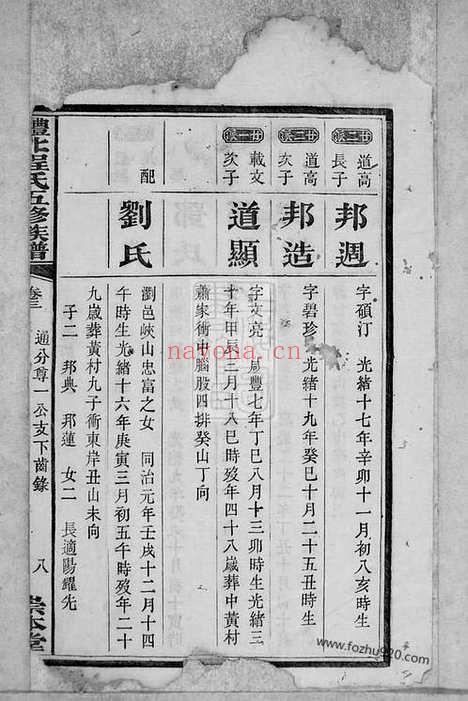 廿二派 道高長子 邦週 字碩汀 光緒十七年辛卯十一月初八亥時生
廿二派 道高次子 邦造 字碧珍 光緒十九年癸巳十月二十五丑時生
廿一派 載文次子 道顯 字文亮 咸豐七年丁巳八月十三卯時生光緒三
十年甲辰二月十八巳時歿年四十八歲葬中黃村
蕭家衝中腦股四排癸山丁向
配 劉氏 瀏邑峽山忠富之女 同治元年壬戌十二月十四
午時生光緒十六年庚寅三月初五午時歿年二十
九歲葬黃村九子衝東岸丑山未向
子二 邦典 邦蓮 女二 長適陽耀先
醴北程氏五修族譜 卷三 通分尊一公支下齒錄 八
nayona.cn
www.fozhu920.com